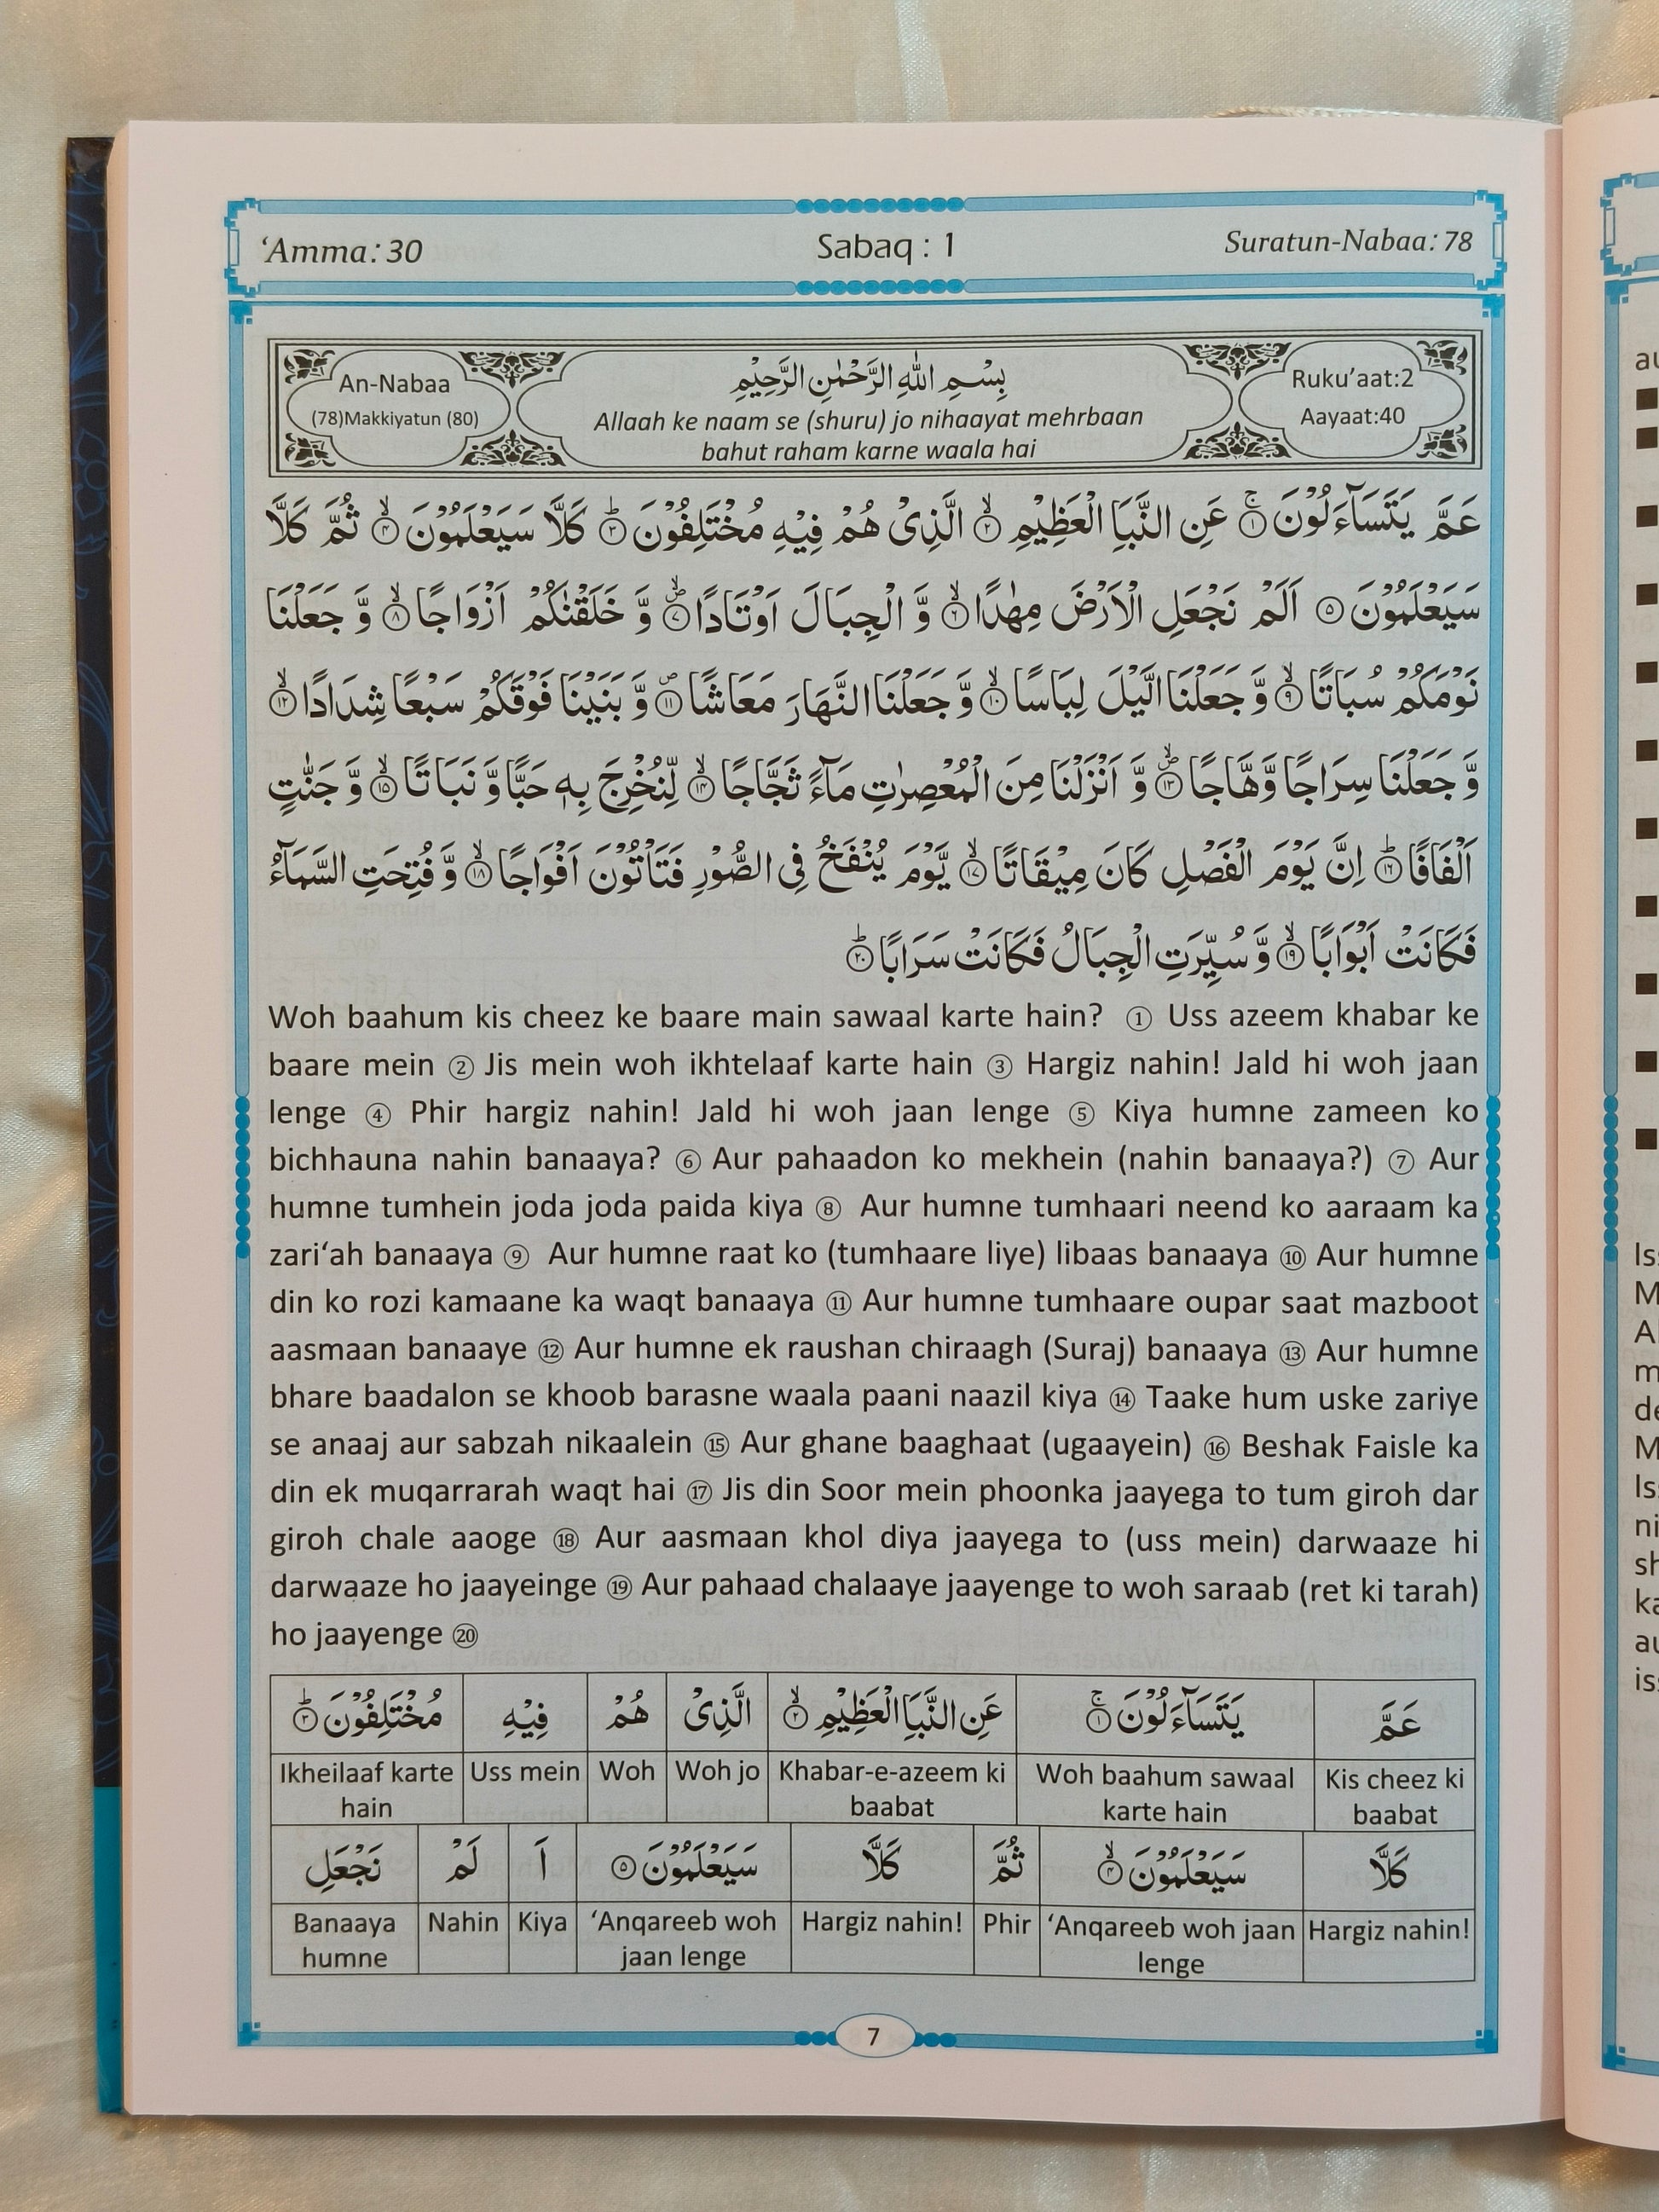 ‘Amma: 30
Sabaq : 1
Suratun-Nabaa: 78
An-Nabaa
(78)Makkiyatun (80)
بِسْمِ اللّٰهِ الرَّحْمٰنِ الرَّحِيْمِ
Allaah ke naam se (shuru) jo nihaayat mehrbaan
bahut raham karne waala hai
Ruku’aat:2
Aayaat:40
عَمَّ يَتَسَآءَلُوْنَ ۚ﴿۱﴾ عَنِ النَّبَاِ الْعَظِيْمِ ۙ﴿۲﴾ الَّذِىْ هُمْ فِيْهِ مُخْتَلِفُوْنَ ؕ﴿۳﴾ كَلَّا سَيَعْلَمُوْنَ ۙ﴿۴﴾ ثُمَّ كَلَّا
سَيَعْلَمُوْنَ ﴿۵﴾ اَلَمْ نَجْعَلِ الْاَرْضَ مِهٰدًا ۙ﴿۶﴾ وَّ الْجِبَالَ اَوْتَادًا ۪ۙ﴿۷﴾ وَّ خَلَقْنٰكُمْ اَزْوَاجًا ۙ﴿۸﴾ وَّ جَعَلْنَا
نَوْمَكُمْ سُبَاتًا ۙ﴿۹﴾ وَّ جَعَلْنَا الَّيْلَ لِبَاسًا ۙ﴿۱۰﴾ وَّ جَعَلْنَا النَّهَارَ مَعَاشًا ۪﴿۱۱﴾ وَّ بَنَيْنَا فَوْقَكُمْ سَبْعًا شِدَادًا ۙ﴿۱۲﴾
وَّ جَعَلْنَا سِرَاجًا وَّهَّاجًا ۪ۙ﴿۱۳﴾ وَّ اَنْزَلْنَا مِنَ الْمُعْصِرٰتِ مَآءً ثَجَّاجًا ۙ﴿۱۴﴾ لِّنُخْرِجَ بِهٖ حَبًّا وَّ نَبَاتًا ۙ﴿۱۵﴾ وَّ جَنّٰتٍ
اَلْفَافًا ؕ﴿۱۶﴾ اِنَّ يَوْمَ الْفَصْلِ كَانَ مِيْقَاتًا ۙ﴿۱۷﴾ يَّوْمَ يُنْفَخُ فِى الصُّوْرِ فَتَاْتُوْنَ اَفْوَاجًا ۙ﴿۱۸﴾ وَّ فُتِحَتِ السَّمَآءُ
فَكَانَتْ اَبْوَابًا ۙ﴿۱۹﴾ وَّ سُيِّرَتِ الْجِبَالُ فَكَانَتْ سَرَابًا ؕ﴿۲۰﴾
Woh baahum kis cheez ke baare main sawaal karte hain? ① Uss azeem khabar ke
baare mein ② Jis mein woh ikhtelaaf karte hain ③ Hargiz nahin! Jald hi woh jaan
lenge ④ Phir hargiz nahin! Jald hi woh jaan lenge ⑤ Kiya humne zameen ko
bichhauna nahin banaaya? ⑥ Aur pahaadon ko mekhein (nahin banaaya?) ⑦ Aur
humne tumhein joda joda paida kiya ⑧ Aur humne tumhaari neend ko aaraam ka
zari‘ah banaaya ⑨ Aur humne raat ko (tumhaare liye) libaas banaaya ⑩ Aur humne
din ko rozi kamaane ka waqt banaaya ⑪ Aur humne tumhaare oupar saat mazboot
aasmaan banaaye ⑫ Aur humne ek raushan chiraagh (Suraj) banaaya ⑬ Aur humne
bhare baadalon se khoob barasne waala paani naazil kiya ⑭ Taake hum uske zariye
se anaaj aur sabzah nikaalein ⑮ Aur ghane baaghaat (ugaayein) ⑯ Beshak Faisle ka
din ek muqarrarah waqt hai ⑰ Jis din Soor mein phoonka jaayega to tum giroh dar
giroh chale aaoge ⑱ Aur aasmaan khol diya jaayega to (uss mein) darwaaze hi
darwaaze ho jaayeinge ⑲ Aur pahaad chalaaye jaayenge to woh saraab (ret ki tarah)
ho jaayenge ⑳
عَمَّ يَتَسَآءَلُوْنَ ۚ﴿۱﴾ عَنِ النَّبَاِ الْعَظِيْمِ ۙ﴿۲﴾ الَّذِىْ هُمْ فِيْهِ مُخْتَلِفُوْنَ ؕ﴿۳﴾
Ikheilaaf karte Uss mein Woh Woh jo Khabar-e-azeem ki Woh baahum sawaal Kis cheez ki
hain baabat karte hain baabat
كَلَّا سَيَعْلَمُوْنَ ۙ﴿۴﴾ ثُمَّ كَلَّا سَيَعْلَمُوْنَ ﴿۵﴾ اَ لَمْ نَجْعَلِ
Banaaya Nahin Kiya ‘Anqareeb woh Hargiz nahin! Phir ‘Anqareeb woh jaan Hargiz nahin!
humne jaan lenge lenge
7